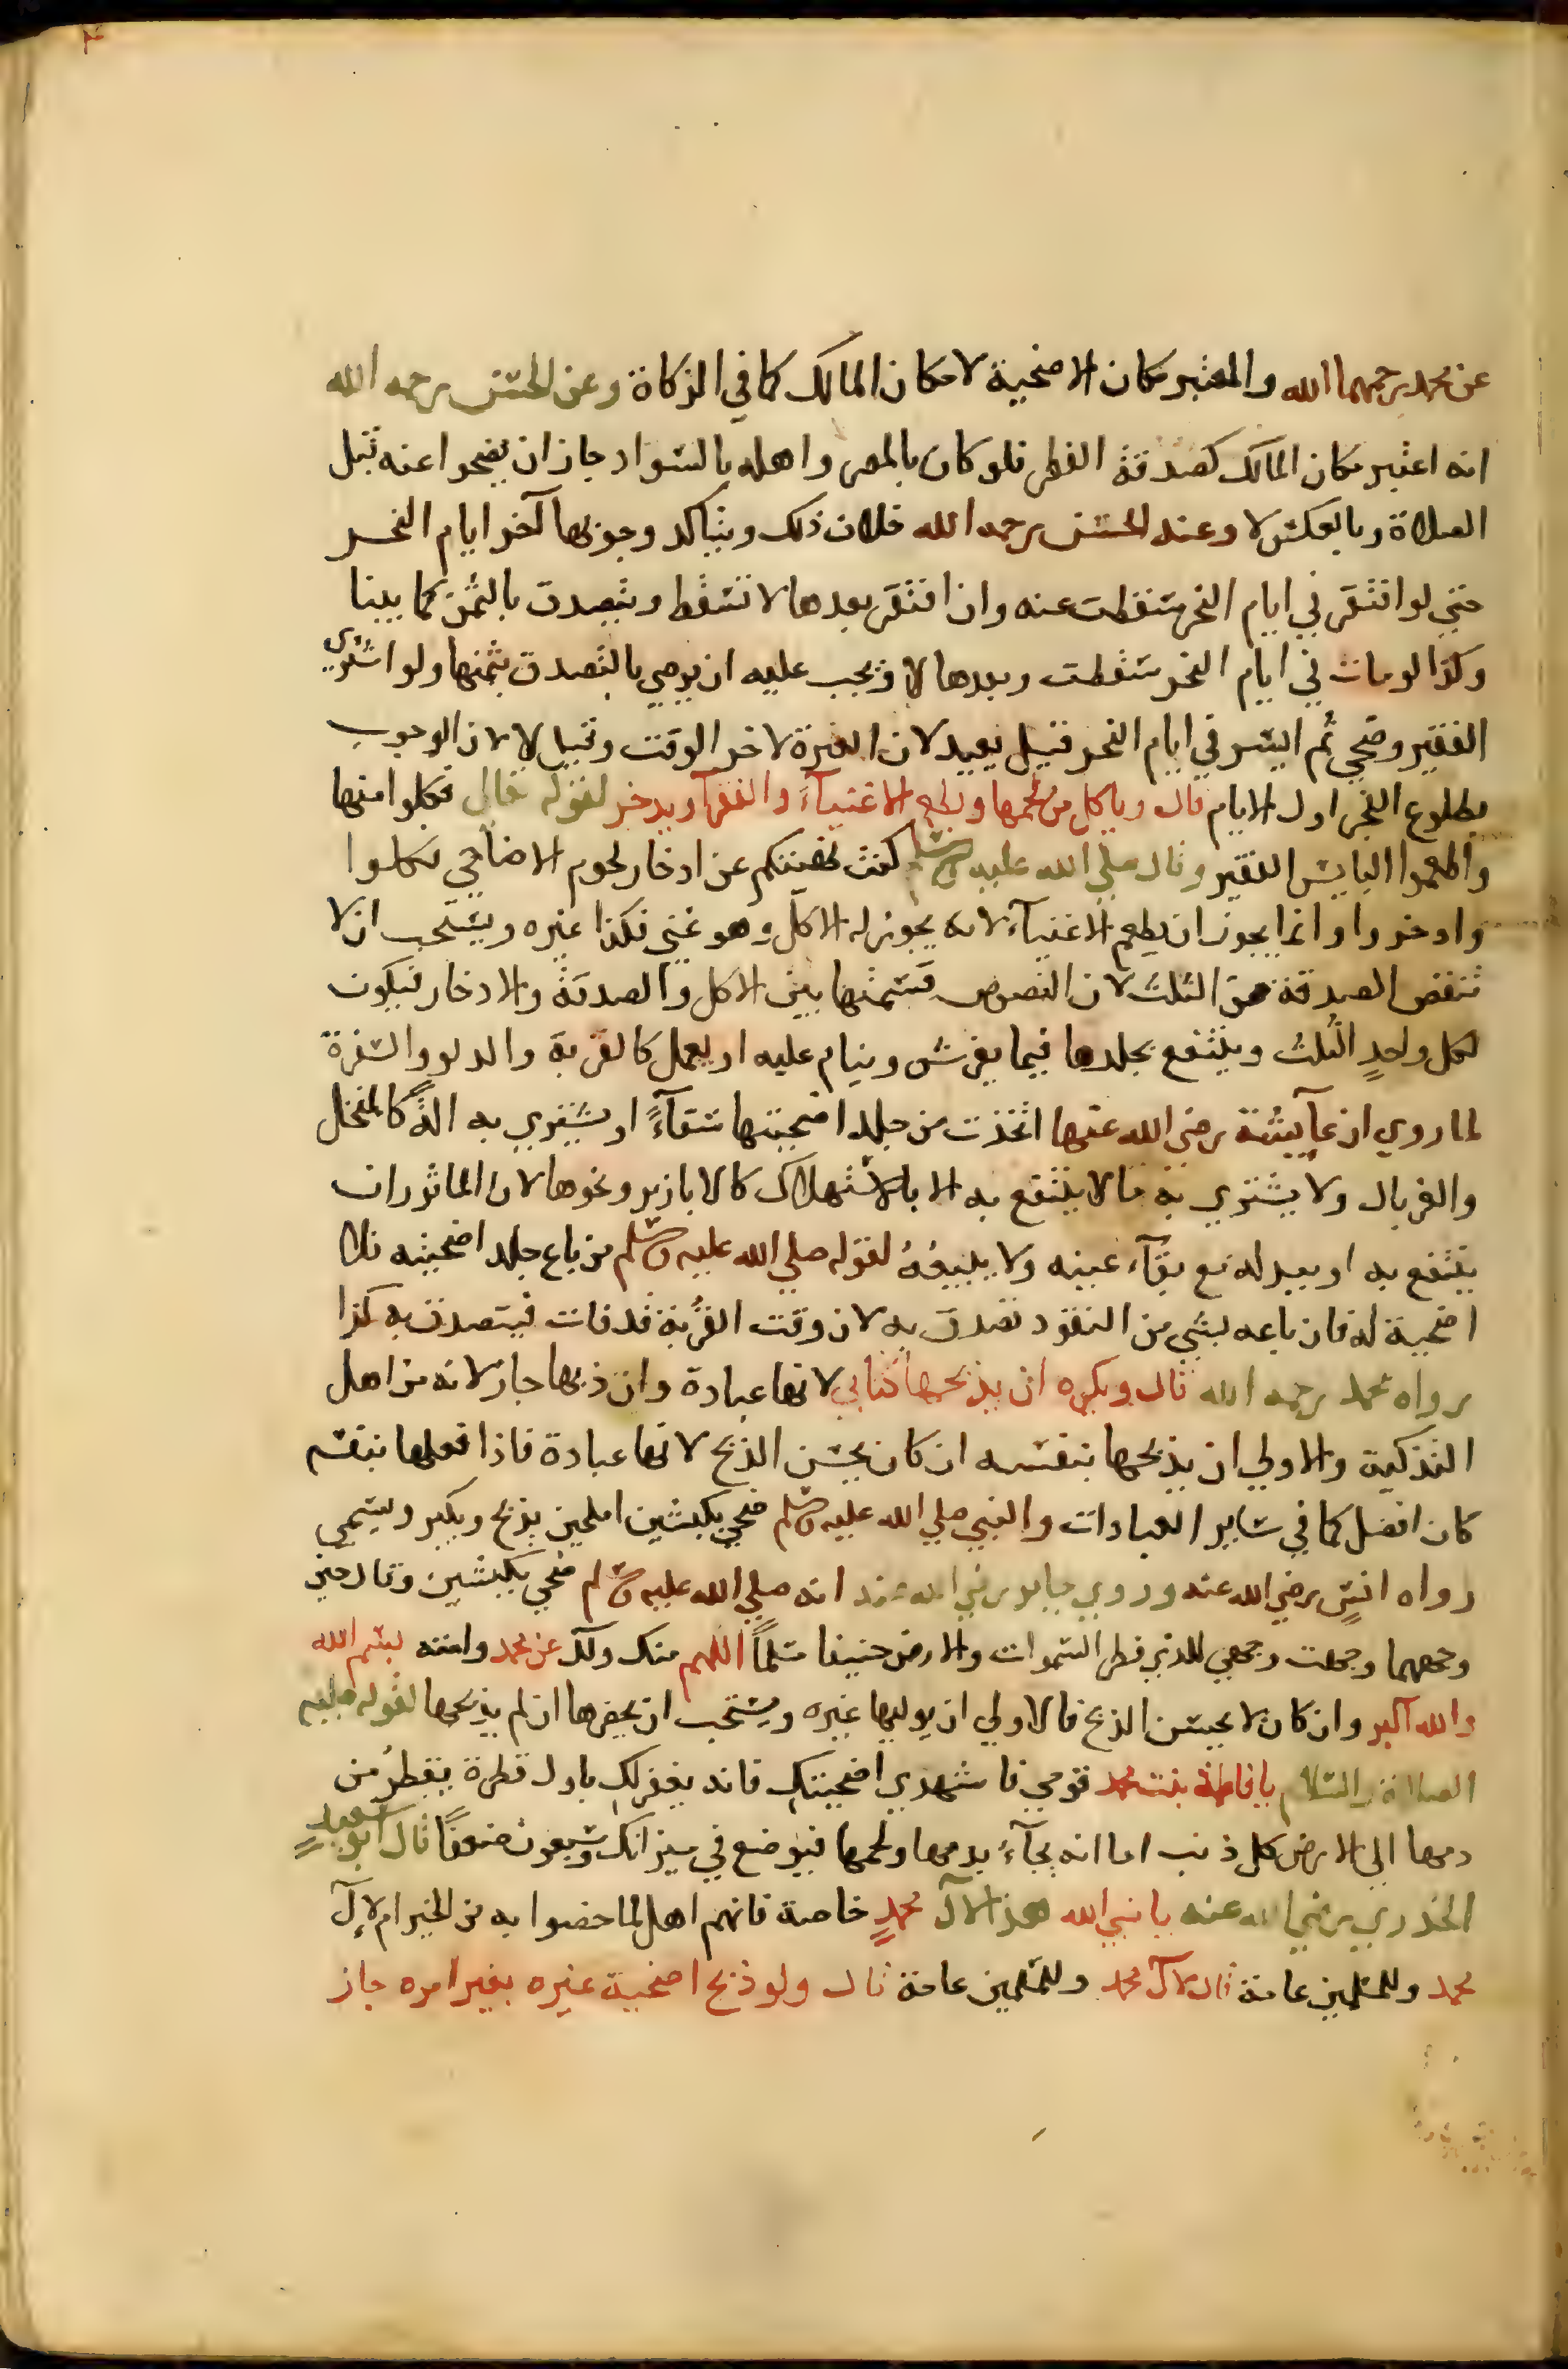 عن محمد رحمهما الله والمعتبر مكان الاضحية لا مكان المالك كما في الزكاة وعن الحسن رحمه الله
انه اعتبر مكان المالك كصدقة الفطر فلو كان بالمصر واهله بالسواد جاز ان يضحوا عنه قبل
الصلاة وبالعكس لا وعند الحسن رحمه الله خلاف ذلك ويتاكد وجوبها آخر ايام النحر
حتي لو افتقر في ايام النحر سقطت عنه وان افتقر بعدها لا تسقط ويتصدق بالثمن كما بينا
وكذا لو مات في ايام النحر سقطت وبعدها لا ويجب عليه ان يوصي بالتصدق بثمنها ولو اشتري
الفقير وضحي ثم ايسر في ايام النحر قيل يعيد لان العبرة لاخر الوقت وقيل لا لان الوجوب
بطلوع الفجر اول الايام قال وياكل من لحمها ويطعم الاغنيآء والفقرآ ويدخر لقوله تعالي فكلوا منها
واطعموا البايس الفقير وقال صلي الله عليه وسلم كنت نهيتكم عن ادخار لحوم الاضاحي فكلوا
وادخروا وانما يجوز ان يطعم الاغنيآء لانه يجوز له الاكل وهو غني فكذا غيره ويستحب ان لا
تنقص الصدقة من الثلث لان النصوص قسمتها بين الاكل والصدقة والادخار فيكون
لكل واحدٍ الثُلث وينتفع بجلدها فيما يفرش وينام عليه او يعمل كالقربة والدلو والسفرة
لما روي ان عآيشة رضي الله عنها اتخذت من جلد اضحيتها سقآءً او يشتري به الةً كالمنخل
والغربال ولا يشتري به ما لا ينتفع به الا بالاستهلاك كالابازير ونحوها لان الماثور ان
ينتفع به او ببدله مع بقآء عينه ولا يبيعُهُ لقوله صلي الله عليه وسلم من باع جلد اضحيته فلا
اضحية له فان باعه بشي من النقود تصدق به لان وقت القُربة قد فات فيتصدق به كذا
رواه محمد رحمه الله قال ويكره ان يذبحها كتابي لانها عبادة وان ذبحها جاز لانه من اهل
التذكية والاولي ان يذبحها بنفسه ان كان يحسن الذبح لانها عبادة فاذا فعلها بنفسه
كان افضل كما في ساير العبادات والنبي صلي الله عليه وسلم ضحي بكبشين املحين يذبح ويكبر ويسمي
رواه انسٍ رضي الله عنه وروي جابر رضي الله عنه انه صلي الله عليه وسلم ضحي بكبشين وقال حين
وجههما وجهت وجهي للذي فطر السموات والارض حنيفا مسلماً اللهم منك ولك عن محمد وامته بسم الله
والله اكبر وان كان لا يحسن الذبح فالاولي ان يوليها غيره ويستحب ان يحضرها ان لم يذبحها لقوله عليه
الصلاة والسلام يا فاطمة بنت محمد قومي فاشهدي اضحيتك فانه يغفر لكِ باول قطرة يقطرُ من
دمها الي الارض كل ذنب اما انه يجآءُ بدمها ولحمها فيوضع في ميزانك وسبعون ضعفاً قال ابو سعيدٍ
الخدري رضي الله عنه يا نبي الله هذا لآل محمدٍ خاصة فانهم اهل لما خصوا به من الخير ام لآل
محمد وللمسلمين عامة قال لآل محمد وللمسلمين عامة قال ولو ذبح اضحية غيره بغير امره جاز